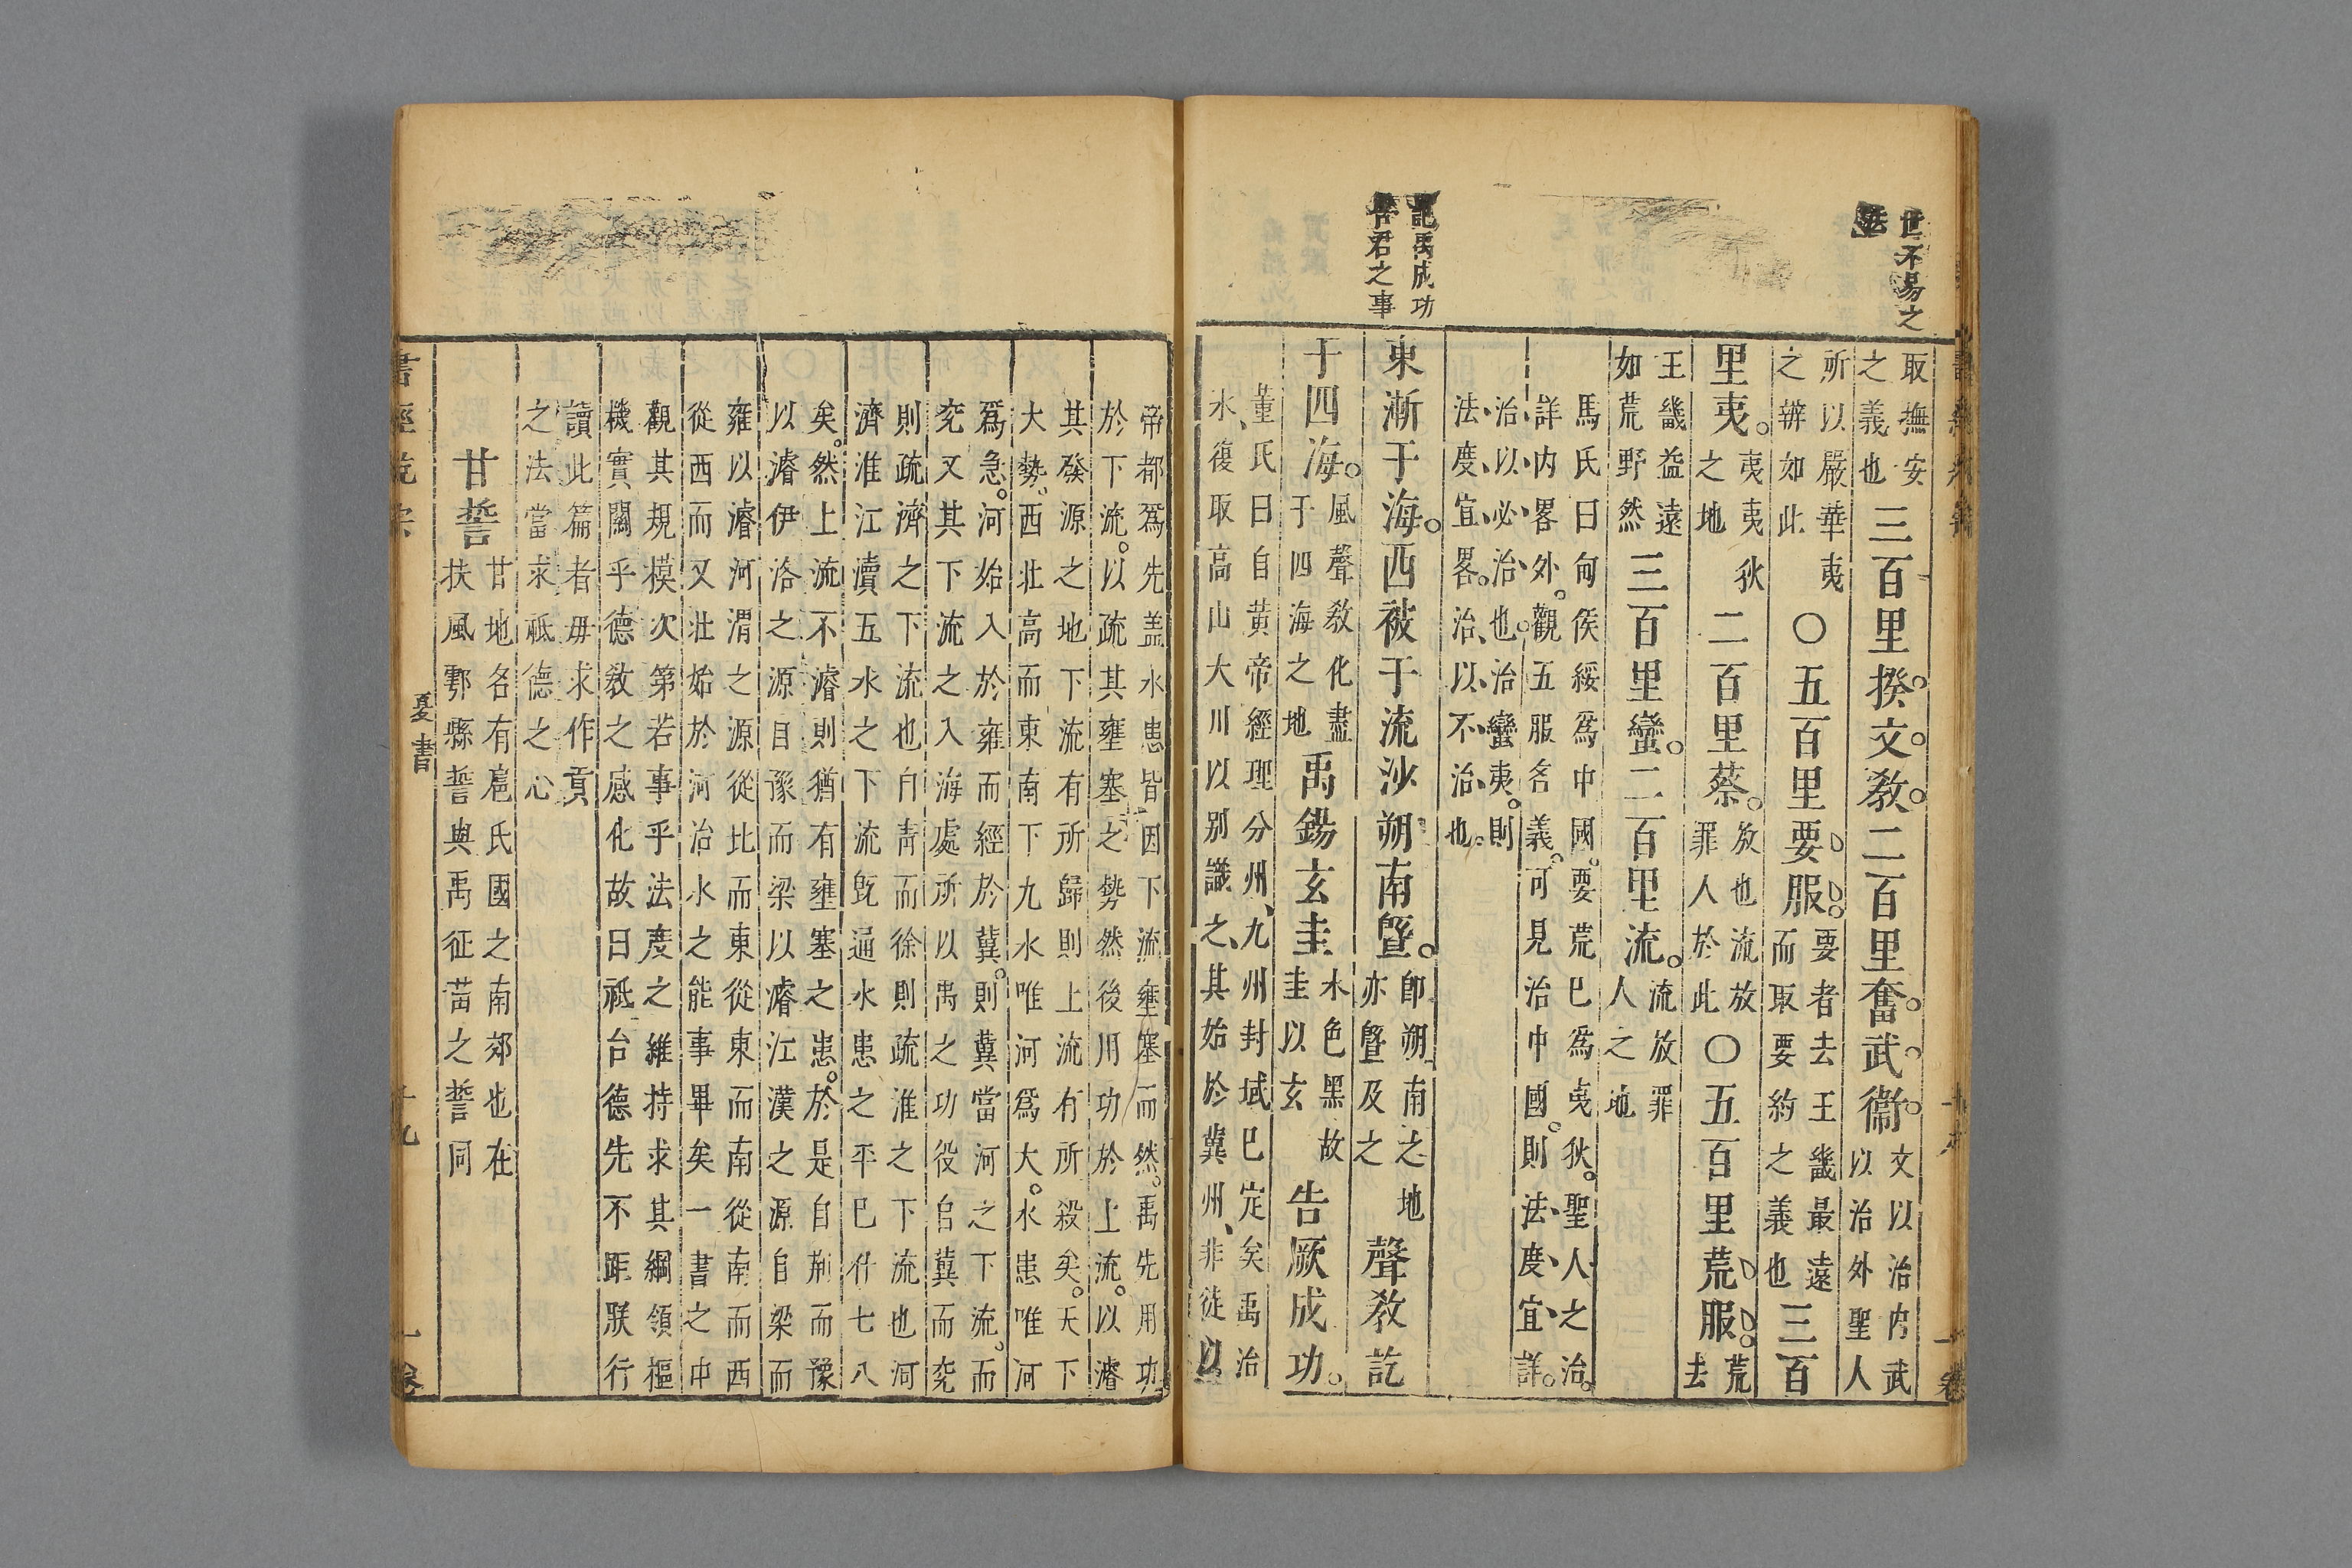 世不易之
法
記禹成功
告君之事
取撫安
之義也
三百里揆文教二百里奮武衞
文以治内武
以治外聖人
所以嚴華夷
之辨如此
〇五百里要服
要者去王畿最遠
而取要約之義也
三百
里夷
夷夷狄
之地
二百里蔡
放也流放
罪人於此
〇五百里荒服
荒
去
王畿益遠
如荒野然
三百里蠻二百里流
流放罪
人之地
馬氏曰甸侯綏爲中國要荒已爲夷狄聖人之治
詳内畧外觀五服名義可見治中國則法度宜詳
治以必治也治蠻夷則
法度宜畧治以不治也
東漸于海西被于流沙朔南曁
即朔南之地
亦曁及之
聲教訖
于四海
風聲教化盡
于四海之地
禹錫玄圭
水色黑故
圭以玄
告厥成功
董氏曰自黃帝經理分州九州封域已定矣禹治
水復取高山大川以别識之其始於冀州非徒以
帝都爲先盖水患皆因下流壅塞而然禹先用功
於下流以疏其壅塞之勢然後用功於上流以濬
其發源之地下流有所歸則上流有所殺矣天下
大勢西北高而東南下九水唯河爲大水患唯河
爲急河始入於雍而經於冀則冀當河之下流而
兖又其下流之入海處所以禹之功役自冀而兖
則疏濟之下流也自青而徐則疏淮之下流也河
濟淮江瀆五水之下流旣通水患之平已什七八
矣然上流不濬則猶有壅塞之患於是自荊而豫
以濬伊洛之源自豫而梁以濬江漢之源自梁而
雍以濬河渭之源從北而東從東而南從南而西
從西而又北始於河治水之能事畢矣一書之中
觀其規模次第若事乎法度之維持求其綱領樞
機實關乎德教之感化故曰祗台德先不距朕行
讀此篇者毋求作貢
之法當求祗德之心
甘誓
甘地名有扈氏國之南郊也在
扶風鄠縣誓與禹征苗之誓同
夏書
十九
一卷